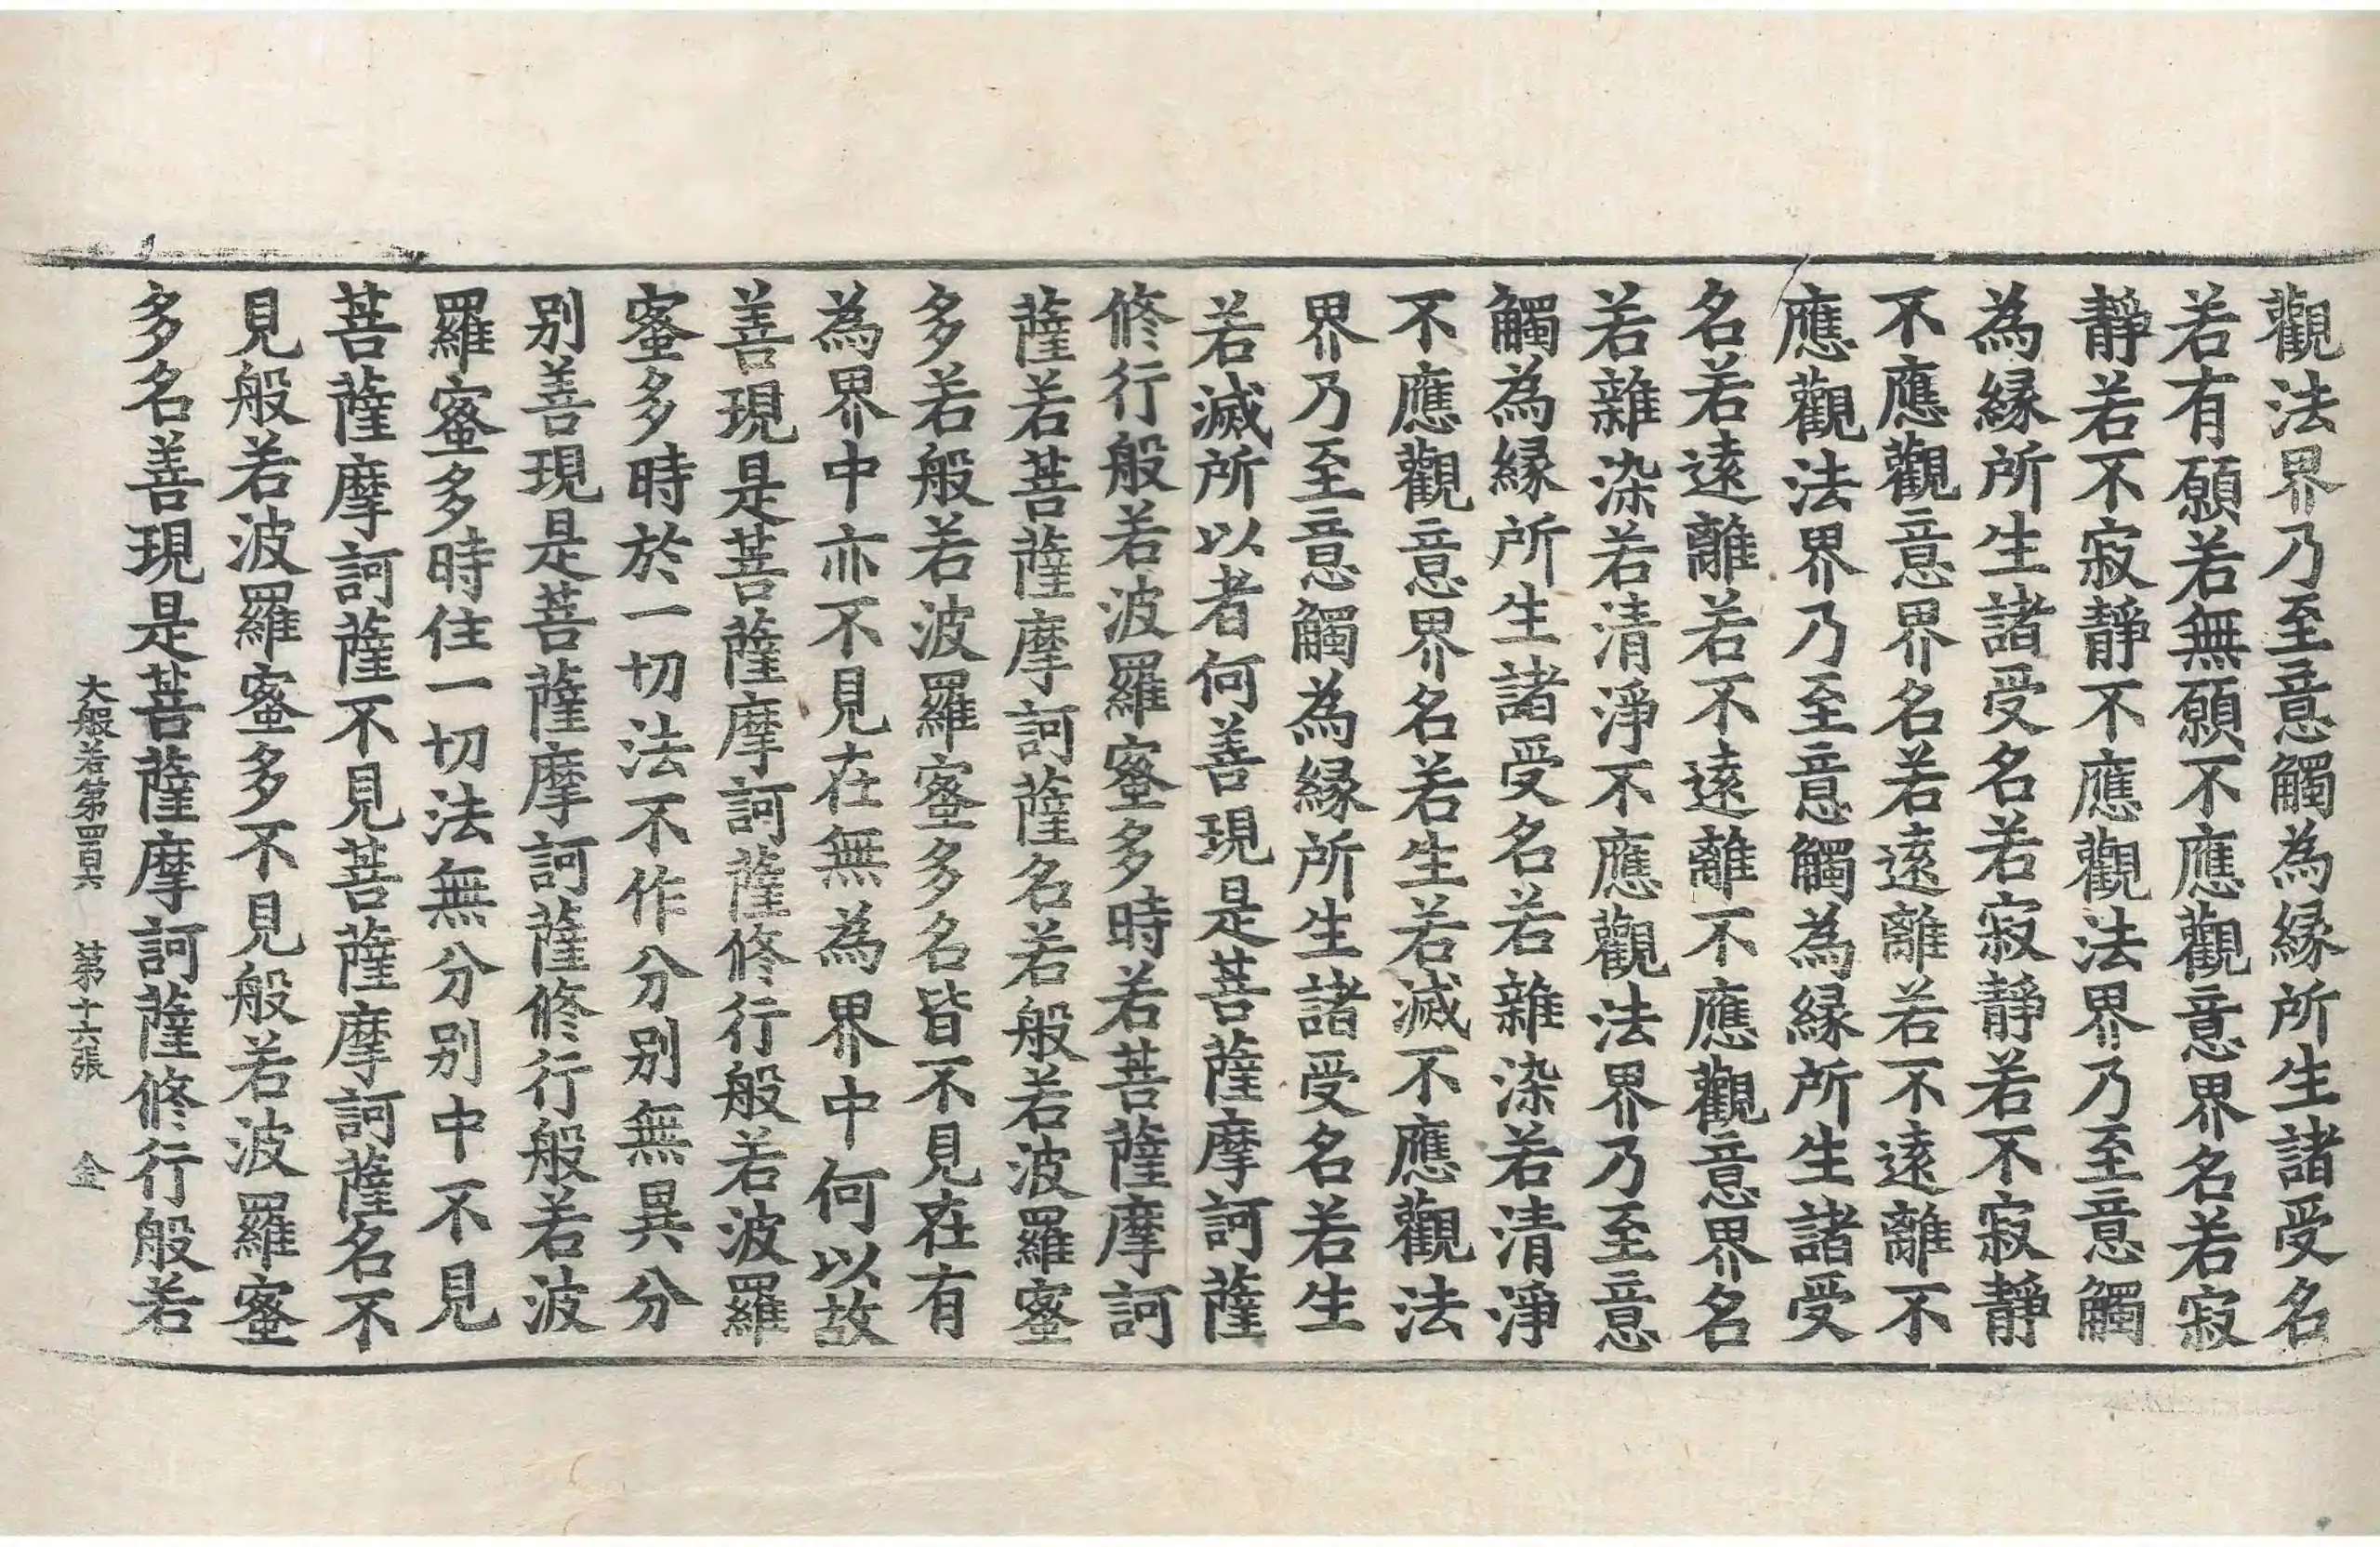 觀法界乃至意觸為縁所生諸受名
若有願若無願不應觀意界名若寂
靜若不寂靜不應觀法界乃至意觸
為縁所生諸受名若寂靜若不寂靜
不應觀意界名若遠離若不遠離不
應觀法界乃至意觸為縁所生諸受
名若遠離若不遠離不應觀意界名
若雜染若清淨不應觀法界乃至意
觸為縁所生諸受名若雜染若清淨
不應觀意界名若生若滅不應觀法
界乃至意觸為縁所生諸受名若生
若滅所以者何善現是菩薩摩訶薩
修行般若波羅蜜多時若菩薩摩訶
薩若菩薩摩訶薩名若般若波羅蜜
多若般若波羅蜜多名皆不見在有
為界中亦不見在無為界中何以故
善現是菩薩摩訶薩修行般若波羅
蜜多時於一切法不作分别無異分
别善現是菩薩摩訶薩修行般若波
羅蜜多時住一切法無分别中不見
菩薩摩訶薩不見菩薩摩訶薩名不
見般若波羅蜜多不見般若波羅蜜
多名善現是菩薩摩訶薩修行般若
大般若第四百六 第十六張 金